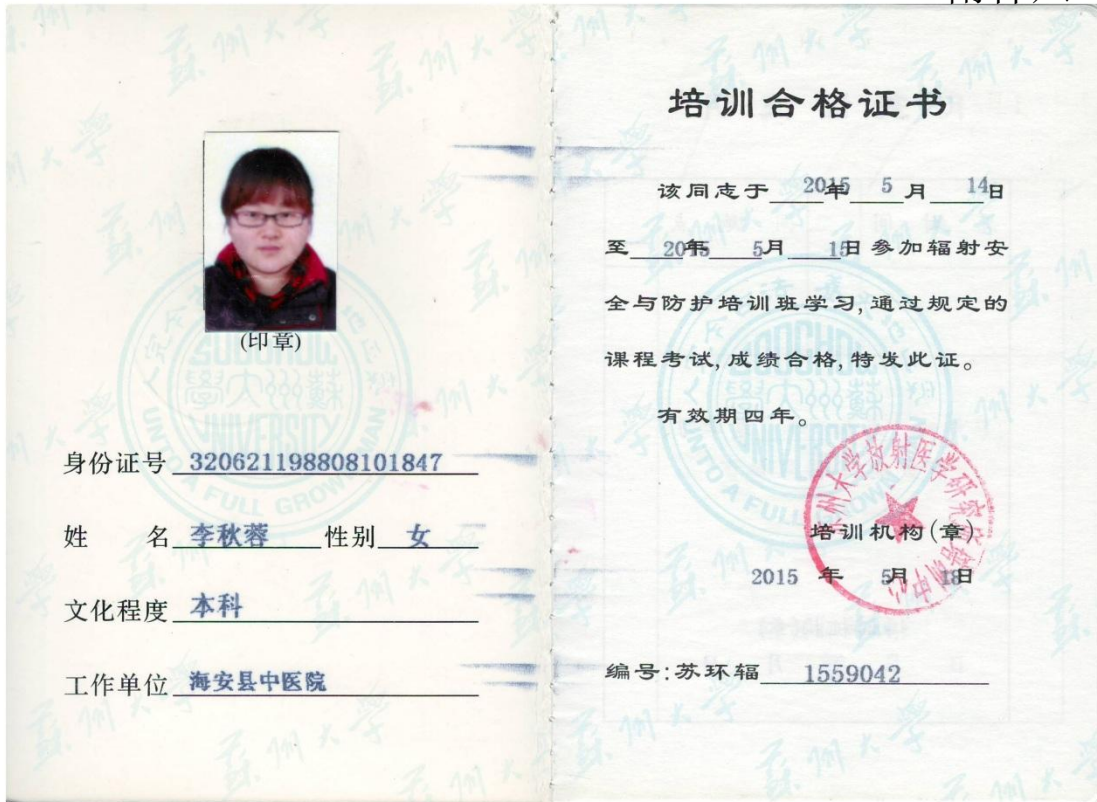 (印章)
身份证号 320621198808101847
姓 名 李秋蓉 性别 女
文化程度 本科
工作单位 海安县中医院
培训合格证书
该同志于 2015年 5月 14日
至 2015年 5月 15日参加辐射安
全与防护培训班学习,通过规定的
课程考试,成绩合格,特发此证。
有效期四年。
培训机构(章)
2015 年 5月 18日
编号:苏环辐 1559042
苏州大学
SOOCHOW
UNIVERSITY
UNTO A FULL GROWN MAN